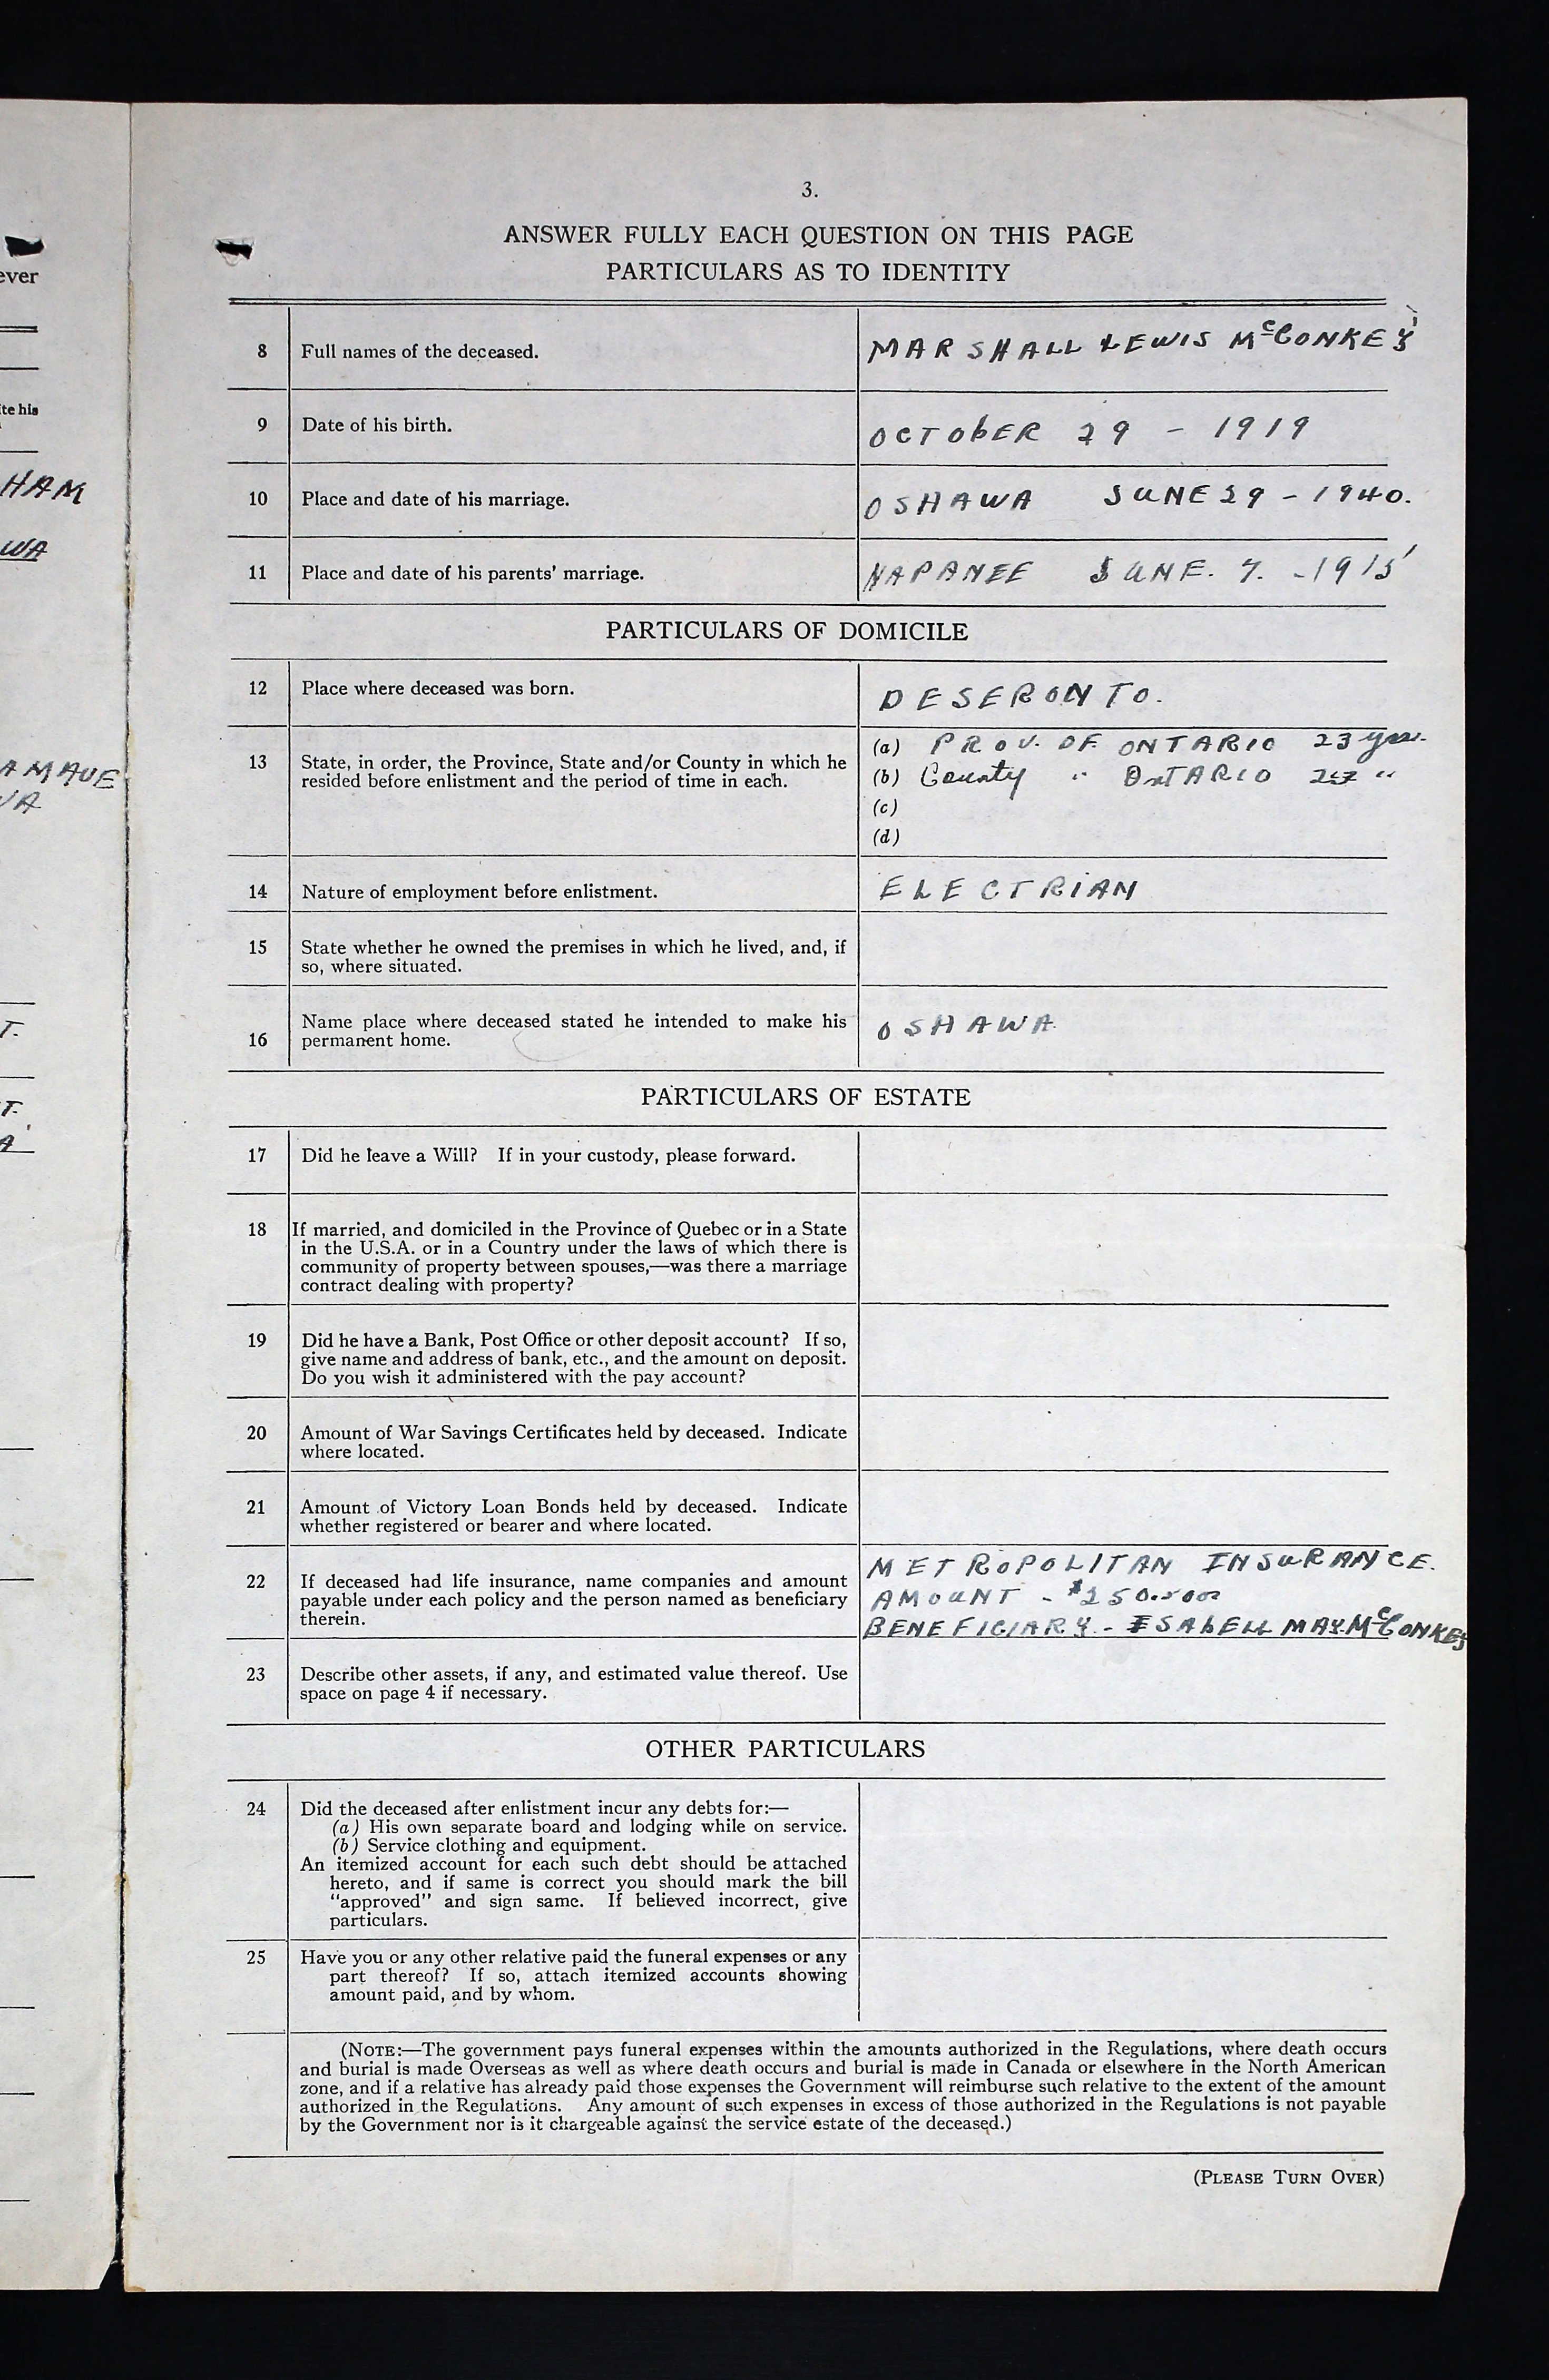 3.
ANSWER FULLY EACH QUESTION ON THIS PAGE
PARTICULARS AS TO IDENTITY
8 Full names of the deceased. MARSHALL LEWIS McCONKEY
9 Date of his birth. OCTObER 29 - 1919
10 Place and date of his marriage. OSHAWA JUNE 29 - 1940.
11 Place and date of his parents' marriage. NAPANEE JUNE. 7. - 1915
PARTICULARS OF DOMICILE
12 Place where deceased was born. DESERONTO.
13 State, in order, the Province, State and/or County in which he (a) PROV. OF ONTARIO 23
resided before enlistment and the period of time in each. (b) County " OntARIO "
(c)
(d)
14 Nature of employment before enlistment. ELECTRIAN
15 State whether he owned the premises in which he lived, and, if
so, where situated.
16 Name place where deceased stated he intended to make his
permanent home. OSHAWA
PARTICULARS OF ESTATE
17 Did he leave a Will? If in your custody, please forward.
18 If married, and domiciled in the Province of Quebec or in a State
in the U.S.A. or in a Country under the laws of which there is
community of property between spouses,—was there a marriage
contract dealing with property?
19 Did he have a Bank, Post Office or other deposit account? If so,
give name and address of bank, etc., and the amount on deposit.
Do you wish it administered with the pay account?
20 Amount of War Savings Certificates held by deceased. Indicate
where located.
21 Amount of Victory Loan Bonds held by deceased. Indicate
whether registered or bearer and where located.
METROPOLITAN INSURANCE.
22 If deceased had life insurance, name companies and amount
payable under each policy and the person named as beneficiary AMOUNT -
therein. BENEFICIARY - ISAbELL MAY. McCONKEY
23 Describe other assets, if any, and estimated value thereof. Use
space on page 4 if necessary.
OTHER PARTICULARS
24 Did the deceased after enlistment incur any debts for:—
(a) His own separate board and lodging while on service.
(b) Service clothing and equipment.
An itemized account for each such debt should be attached
hereto, and if same is correct you should mark the bill
"approved" and sign same. If believed incorrect, give
particulars.
25 Have you or any other relative paid the funeral expenses or any
part thereof? If so, attach itemized accounts showing
amount paid, and by whom.
(NOTE:—The government pays funeral expenses within the amounts authorized in the Regulations, where death occurs
and burial is made Overseas as well as where death occurs and burial is made in Canada or elsewhere in the North American
zone, and if a relative has already paid those expenses the Government will reimburse such relative to the extent of the amount
authorized in the Regulations. Any amount of such expenses in excess of those authorized in the Regulations is not payable
by the Government nor is it chargeable against the service estate of the deceased.)
(PLEASE TURN OVER)
ever
te his
HAM
WA
AM AVE